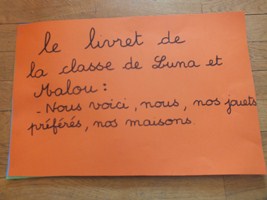 le livret de
la classe de Luna et
Malou :
- Nous voici, nous, nos jouets
préférés, nos maisons